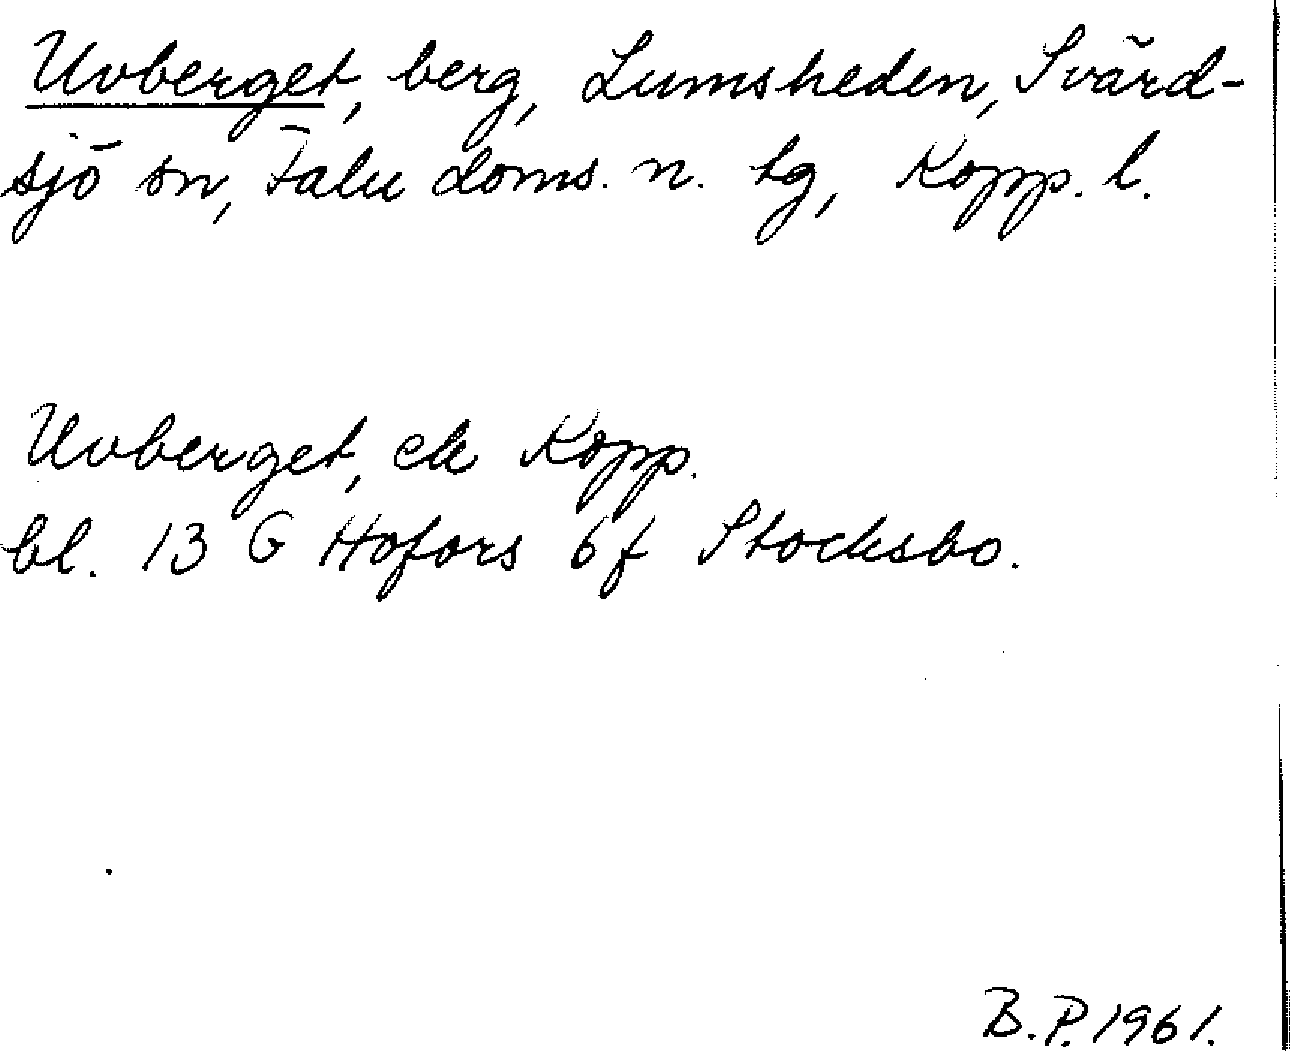 Uvberget, berg, Lumsheden, Svärd-
sjö sn, Falu doms. n. tg, Kopp. l.
Uvberget, ek Kopp.
bl. 13 G Hofors 6f Stocksbo.
B.P. 1961.